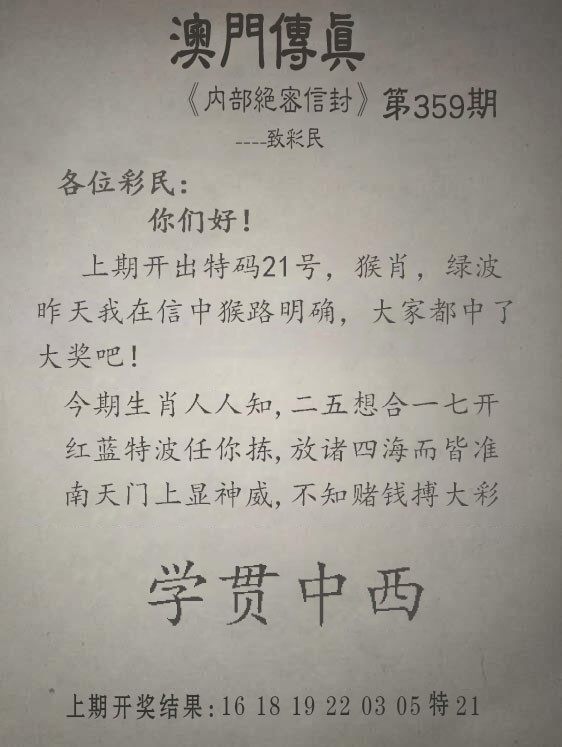 澳門傳真
《内部絕密信封》第359期
----致彩民
各位彩民:
你们好!
上期开出特码21号，猴肖，绿波
昨天我在信中猴路明确，大家都中了
大奖吧!
今期生肖人人知,二五想合一七开
红蓝特波任你拣,放诸四海而皆准
南天门上显神威,不知赌钱搏大彩
学贯中西
上期开奖结果:16 18 19 22 03 05特21